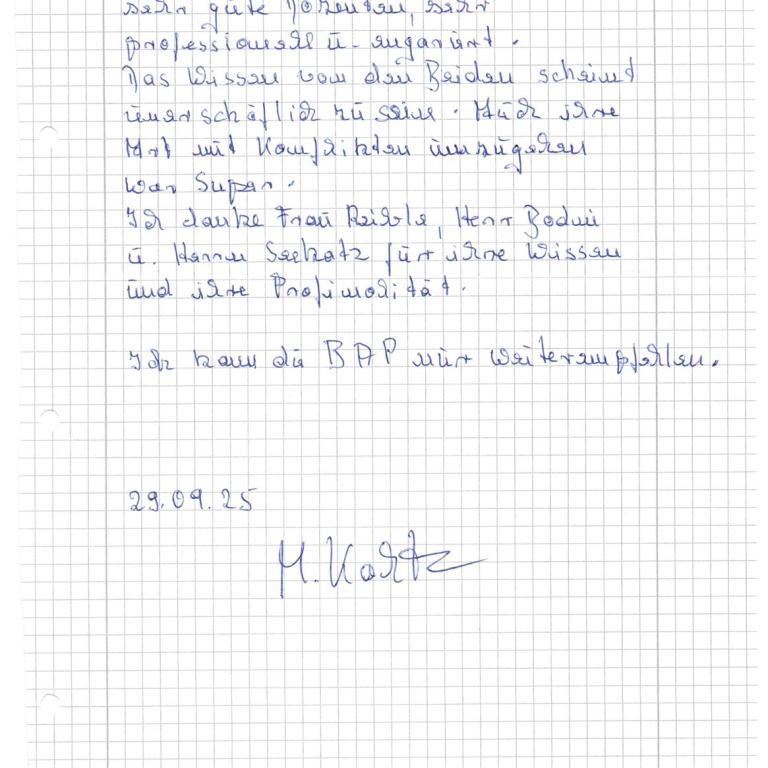 sehr gute Dozenten, sehr
professionell u. engagiert.
Das Wissen von den Beiden scheint
unerschöpflich zu sein. Auch ihre
Art mit Konflikten umzugehen
war Super.
Ich danke Frau Herrn Bodni
u. Herrn Seekatz für ihre Wissen
und ihre Profimalität.
Ich kann die BAP nur weiterempfehlen.
29.09.25
M. Kohtz